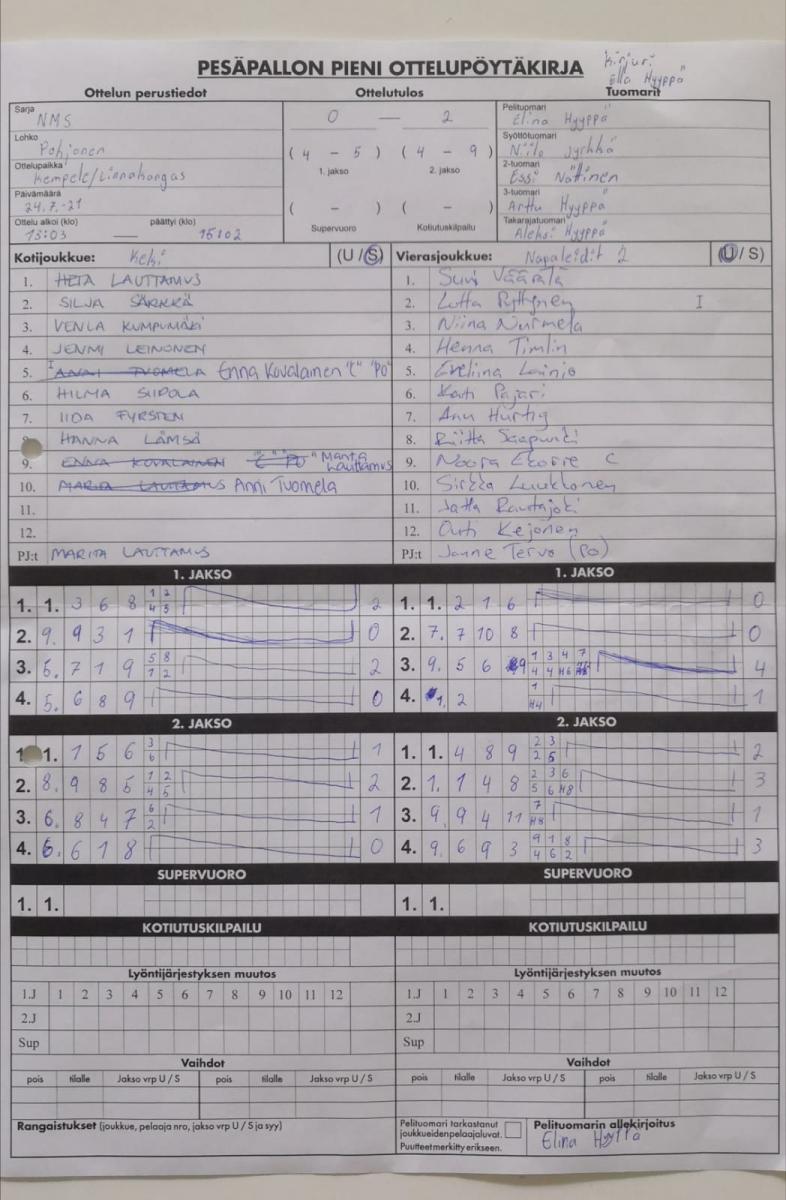 Kirjuri
Ella Hyyppä
PESÄPALLON PIENI OTTELUPÖYTÄKIRJA
Ottelun perustiedot Ottelutulos Tuomarit
Sarja NMS
Lohko Pohjonen
Ottelupaikka Kempele/Linnakangas
Päivämäärä 24.7.-21
Ottelu alkoi (klo) päättyi (klo)
13:03 — 15:02
0 — 2
( 4 - 5 ) ( 4 - 9 )
1. jakso 2. jakso
( - ) ( - )
Supervuoro Kotiutuskilpailu
Pelituomari Elina Hyyppä
Syöttötuomari Niilo Jyrkkä
2-tuomari Essi Nättinen
3-tuomari Arttu Hyyppä
Takarajatuomari Aleksi Hyyppä
Kotijoukkue: Keki (U / S)
1. HETA LAUTTAMUS
2. SILJA SÄRKKÄ
3. VENLA KUMPUMÄKI
4. JENNI LEINONEN
5. ANNI TUOMELA Enna Kovalainen "C" "PO"
6. HILMA SIIPOLA
7. IIDA FYRSTEN
8. HANNA LÄMSÄ
9. ENNA KOVALAINEN "C" "PO" Marita Lauttamus
10. MARITA LAUTTAMUS Anni Tuomela
11.
12.
PJ:t MARITA LAUTTAMUS
Vierasjoukkue: Napaleidit 2 (U / S)
1. Suvi Väärälä
2. Lotta Pyttynen I
3. Niina Nurmela
4. Henna Timlin
5. Eveliina Lainio
6. Kati Pajari
7. Anu Hurtig
8. Riitta Saapunki
9. Noora Ekorre C
10. Sirkka Luukkonen
11. Jatta Rautajoki
12. Outi Kejonen
PJ:t Janne Tervo (PO)
1. JAKSO 1. JAKSO
1. 1. 3 6 8 1 2 4 5 2
2. 9. 9 3 1 0
3. 5. 7 1 9 5 8 1 2 2
4. 5. 6 8 9 0
1. 1. 2 1 6 0
2. 7. 7 10 8 0
3. 9. 5 6 9 1 3 4 7 4 4 H6 4
4. 1. 2 1 H4 1
2. JAKSO 2. JAKSO
1. 1. 1 5 6 3 6 1
2. 8. 9 8 5 1 2 4 5 2
3. 6. 8 4 7 6 2 1
4. 6. 6 1 8 0
1. 1. 4 8 9 2 3 2 5 2
2. 1. 1 4 8 2 3 6 5 6 H8 3
3. 9. 9 4 11 7 H8 1
4. 9. 6 9 3 9 1 8 4 6 2 3
SUPERVUORO SUPERVUORO
1. 1. 1. 1.
KOTIUTUSKILPAILU KOTIUTUSKILPAILU
Lyöntijärjestyksen muutos Lyöntijärjestyksen muutos
1.J 1 2 3 4 5 6 7 8 9 10 11 12 1.J 1 2 3 4 5 6 7 8 9 10 11 12
2.J 2.J
Sup Sup
Vaihdot Vaihdot
pois tilalle Jakso vrp U / S pois tilalle Jakso vrp U / S pois tilalle Jakso vrp U / S pois tilalle Jakso vrp U / S
Rangaistukset (joukkue, pelaaja nro, jakso vrp U / S ja syy)
Pelituomari tarkastanut
joukkueidenpelaajaluvat.
Puutteet merkitty erikseen.
Pelituomarin allekirjoitus
Elina Hyyppä